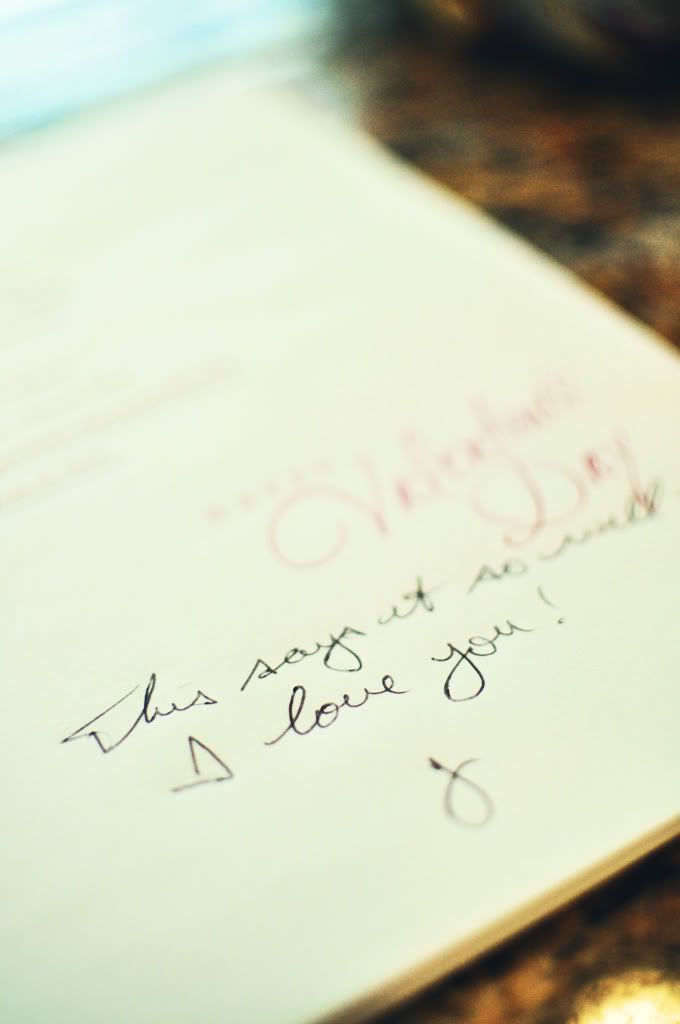 HAPPY
Valentine's
Day
This says it so well
I love you!
y